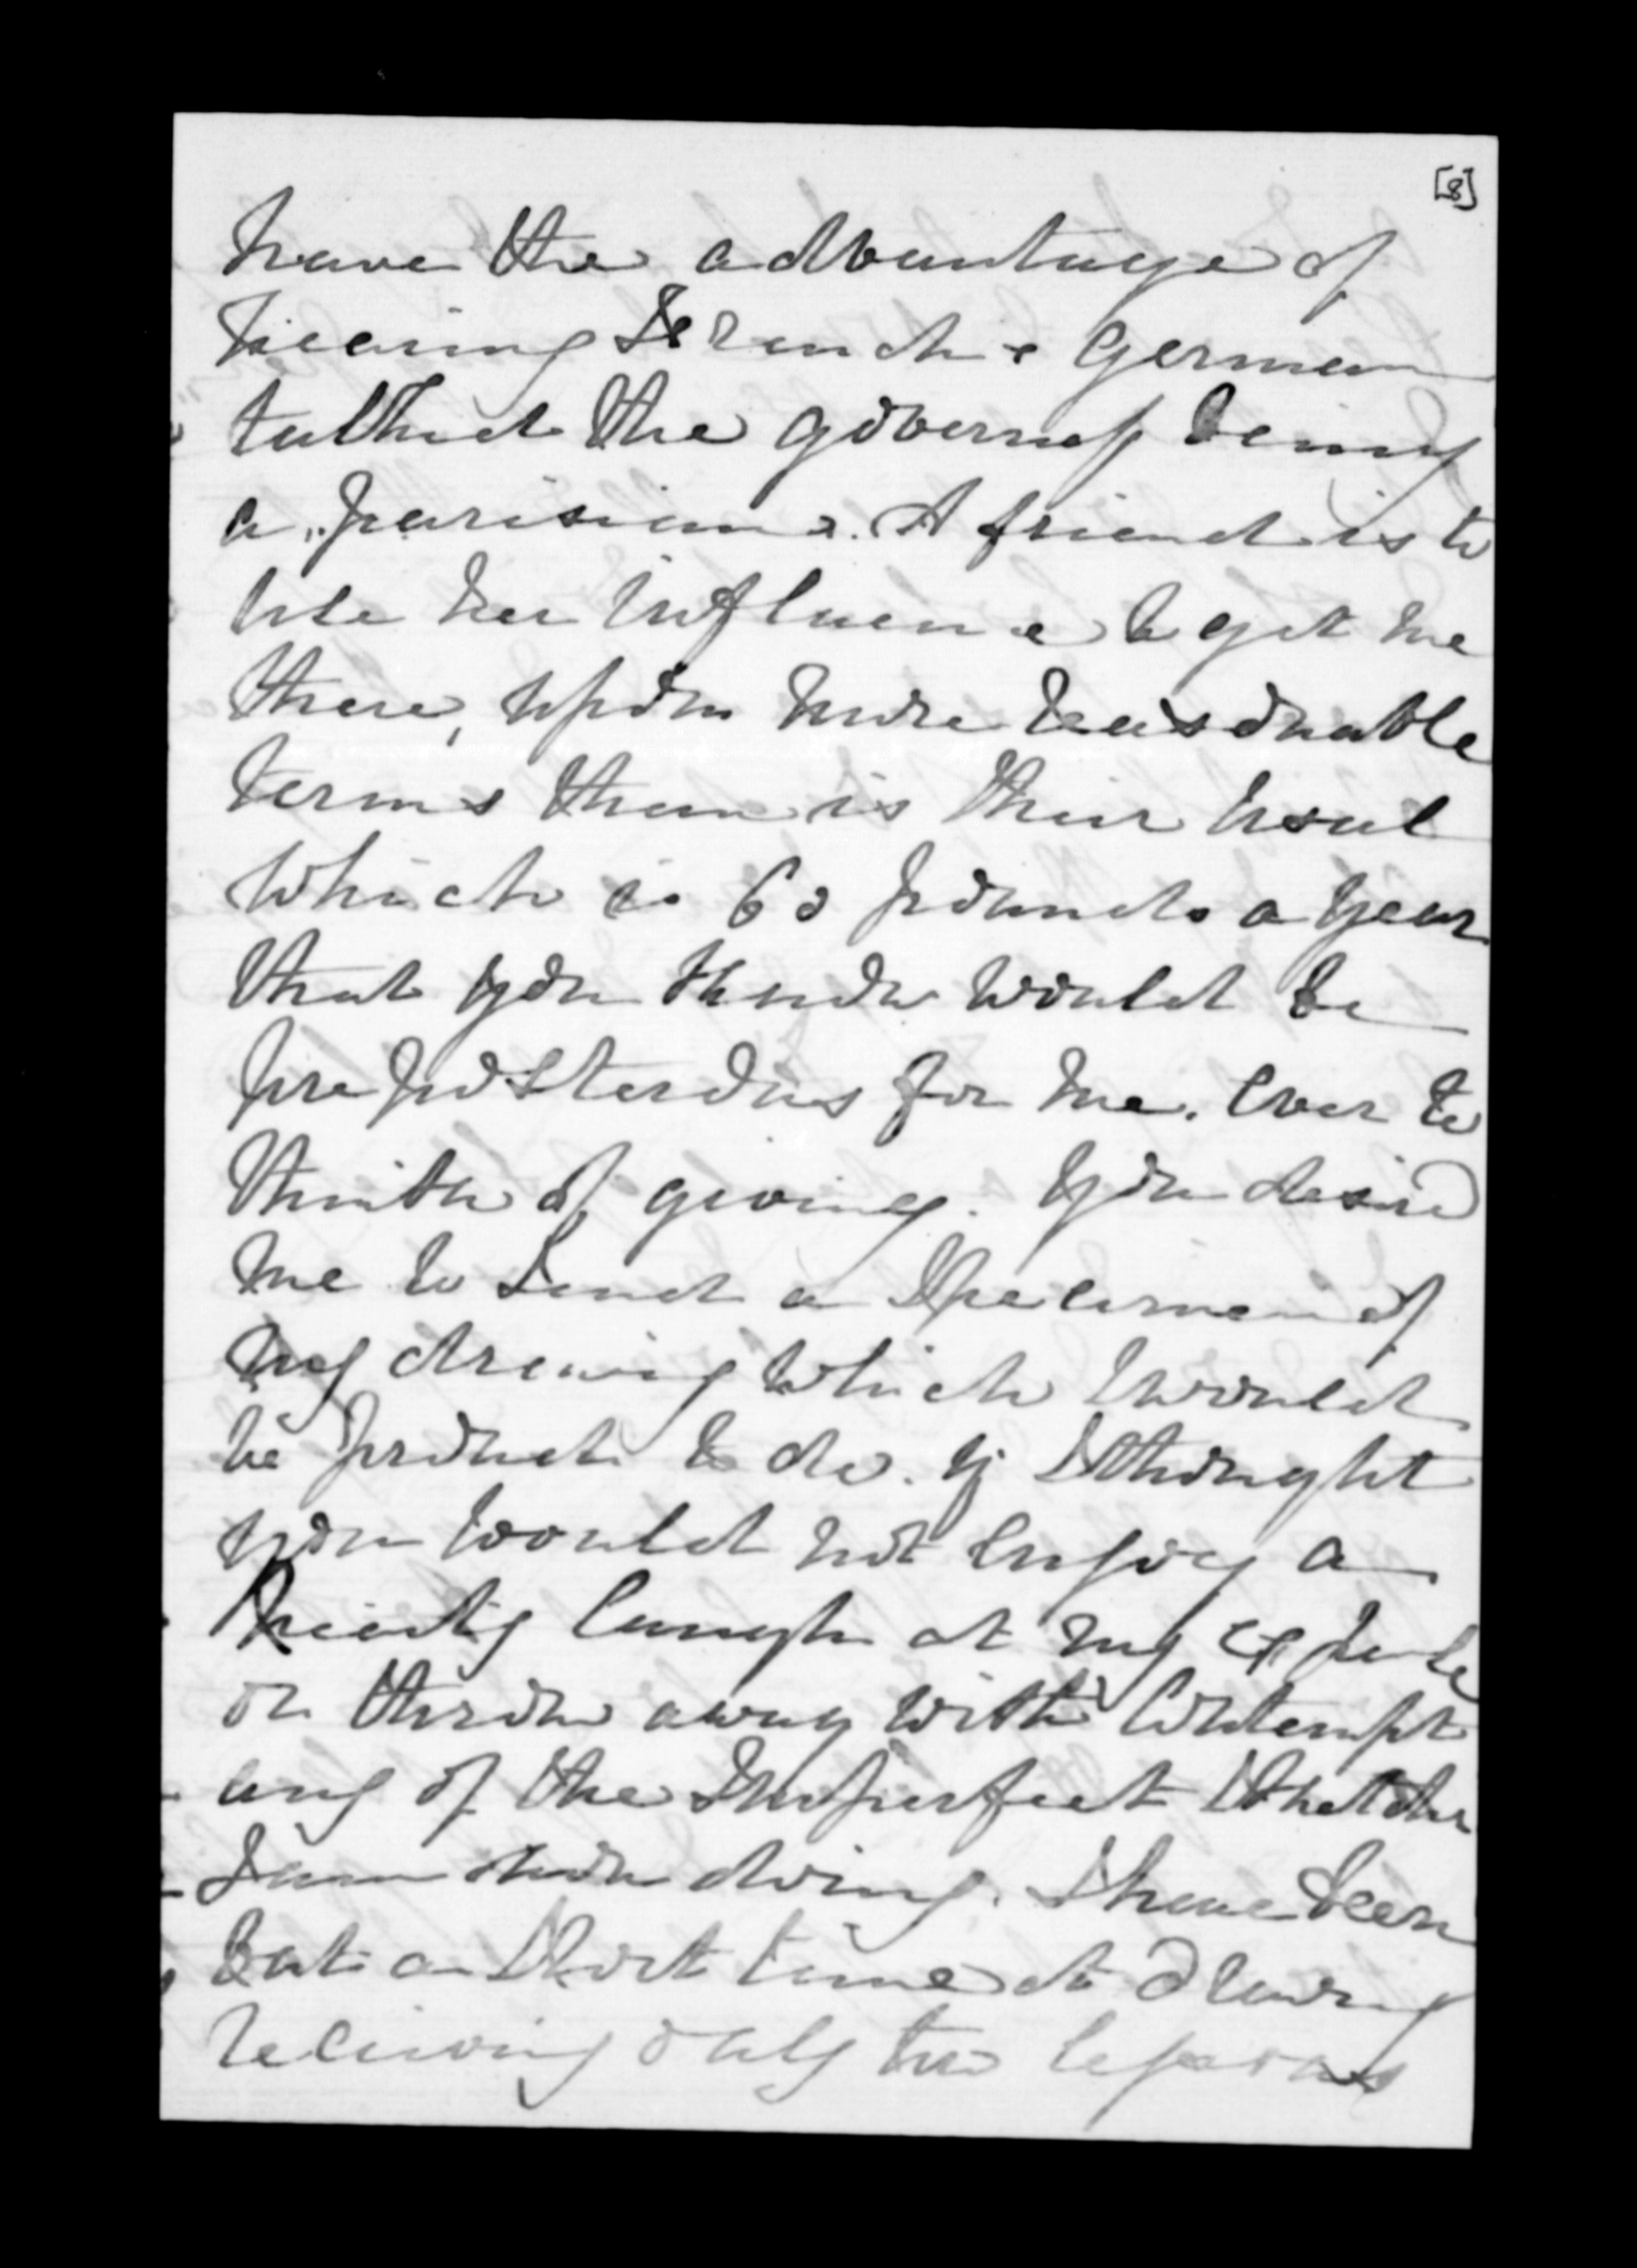 [8]
have the advantage of
hearing French & German
talked the governess being
a parisian. A friend is to
use her influence to get me
there, upon more reasonable
terms than is their usul
which is 60 pounds a year
that you know would be
preposterous for me. ever to
think of giving. You desire
me to send a Specimen of
my drawing which I would
be proud to do. if I thought
you would not enjoy a
hearty laugh at my expense
or throw away with Contempt
any of the Imperfect Sketches
I am now doing. I have been
but a Short time at drawing
receiving only two lessons